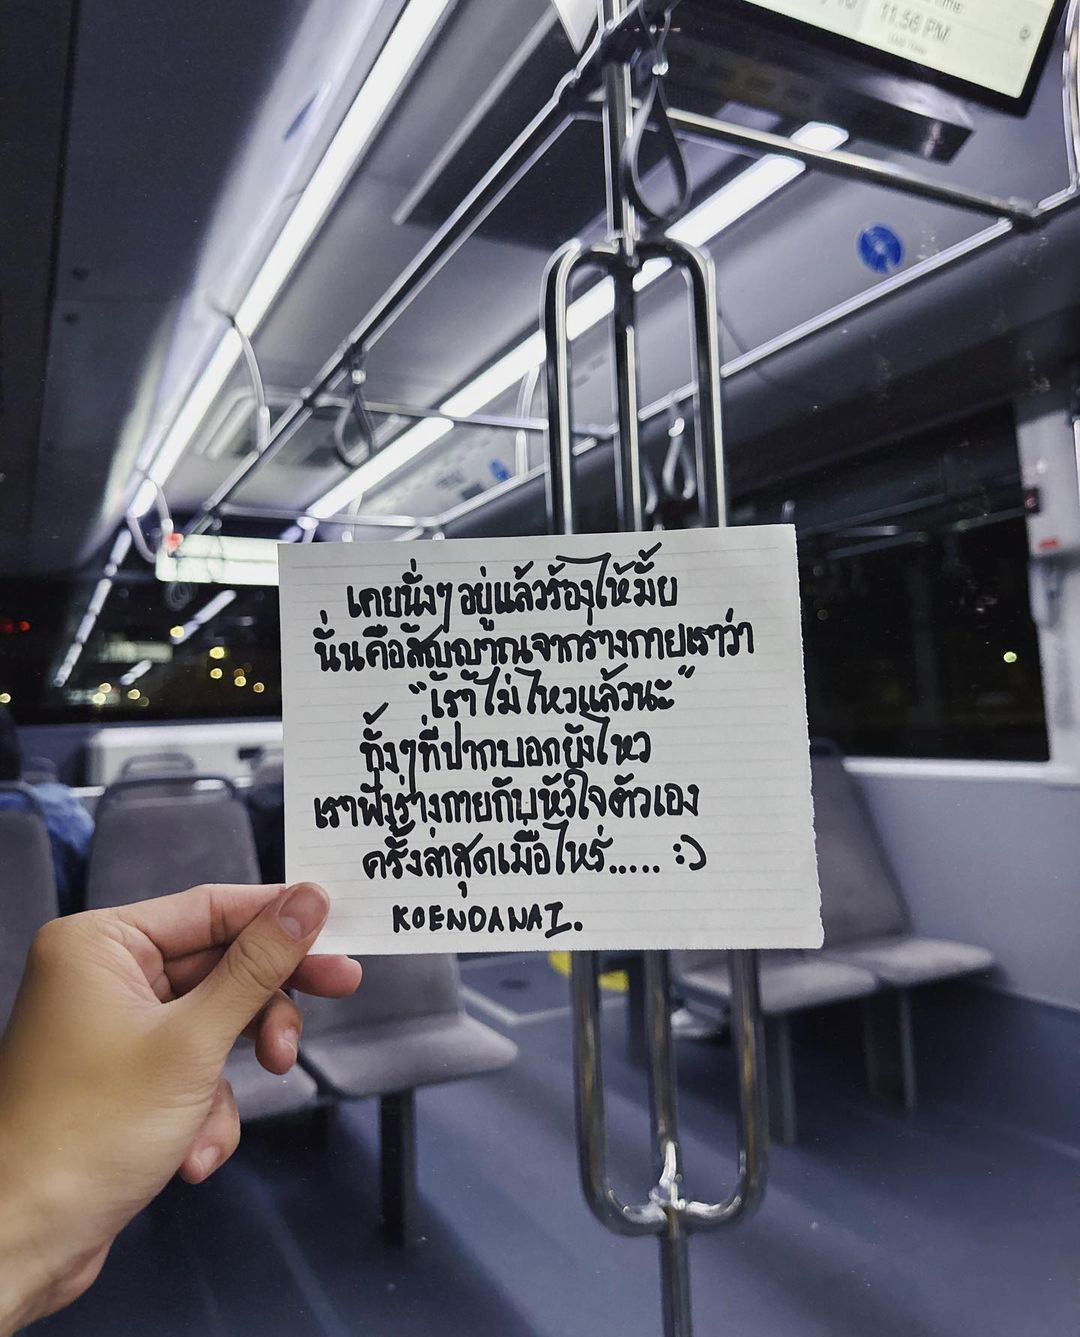 11:56 PM
เคยนั่งๆ อยู่แล้วร้องไห้มั้ย
นั่นคือสัญญาณจากร่างกายเราว่า
"เราไม่ไหวแล้วนะ"
ทั้งๆที่ปากบอกยังไหว
เราฟังร่างกายกับหัวใจตัวเอง
ครั้งล่าสุดเมื่อไหร่..... :)
KOENDANAI.